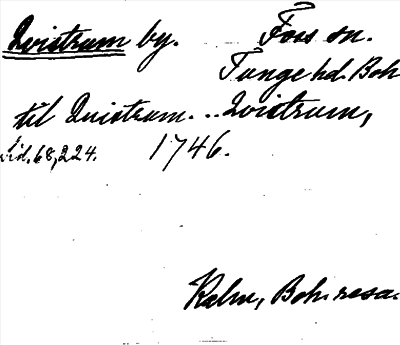 Qvistrum by. Foss sn.
Tunge hd. Boh
til Quistrum. .. Qvistrum,
sid. 68, 224. 1746.
Kalm, Boh. resa.